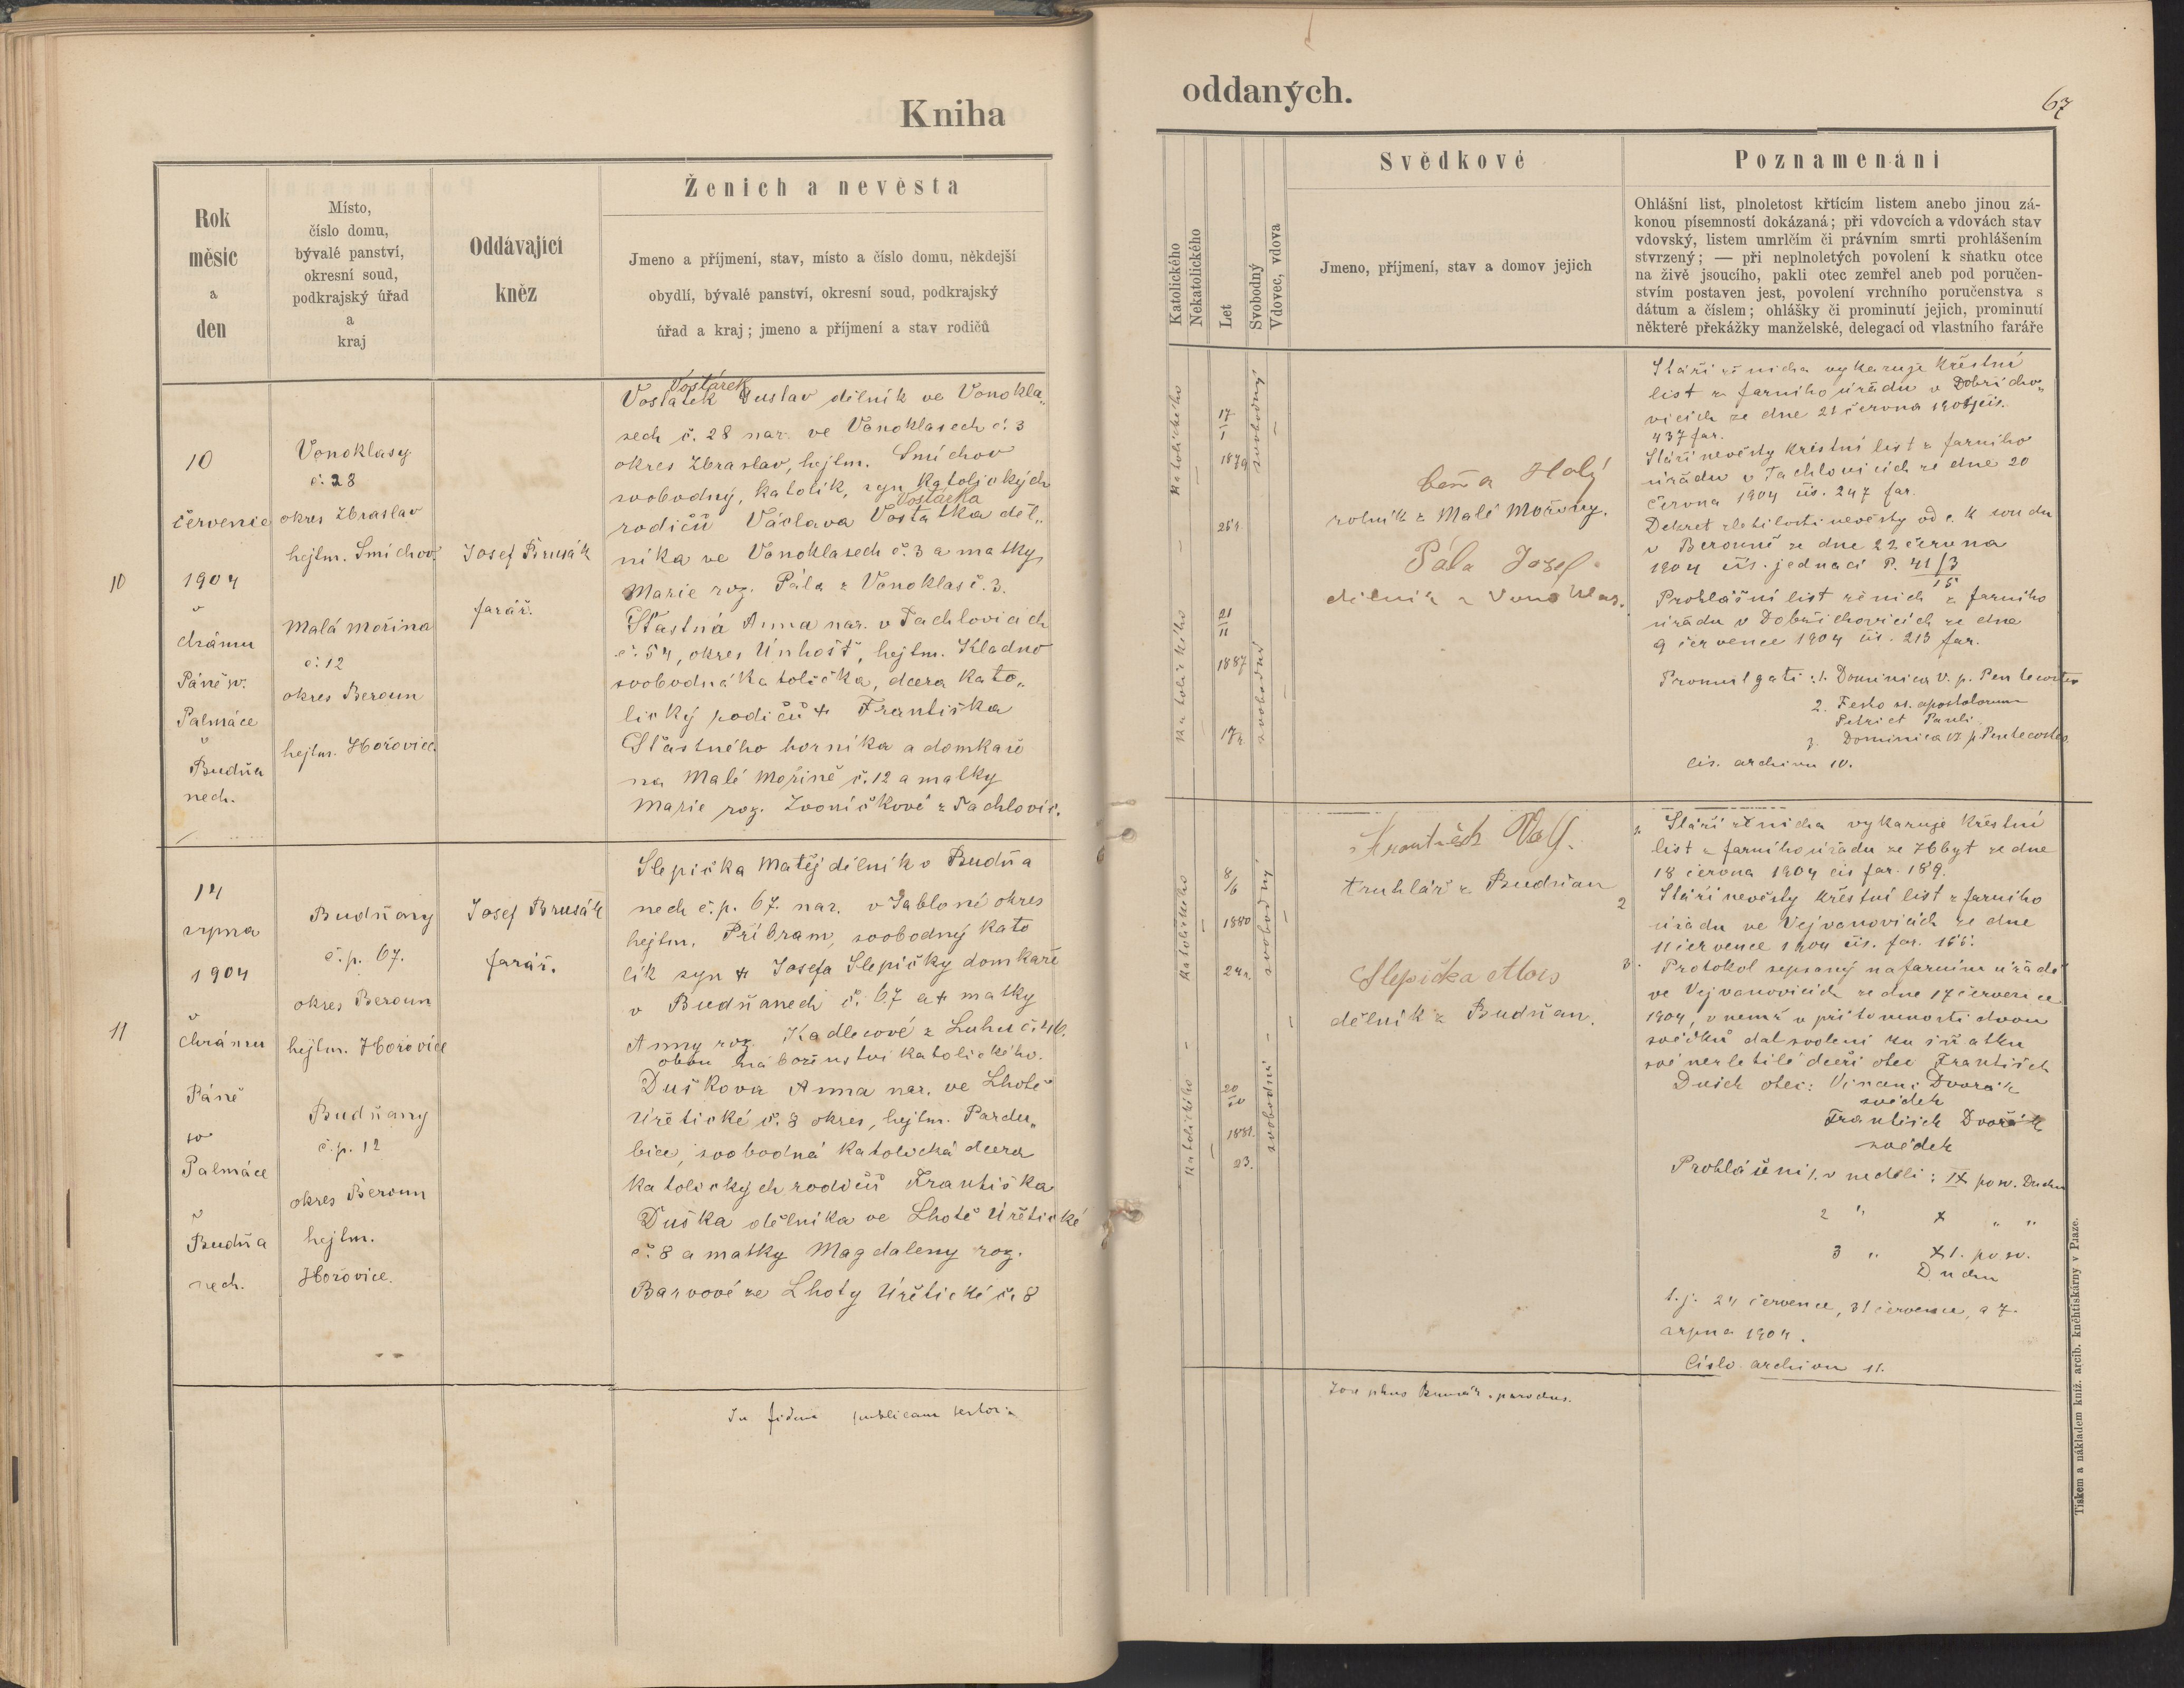 Kniha
Rok
měsíc
a
den
Místo,
číslo domu,
bývalé panství,
okresní soud,
podkrajský úřad
a
kraj
Oddávající
kněz
Ženich a nevěsta
Jmeno a příjmení, stav, místo a číslo domu, někdejší
obydlí, bývalé panství, okresní soud, podkrajský
úřad a kraj; jmeno a příjmení a stav rodičů
10
10
července
1904
v
chrámu
Páně sv.
Palmáce
v
Budňa
nech.
Vonoklasy
č. 28
okres Zbraslav
hejtm. Smíchov
Malá Mořina
č. 12
okres Beroun
hejtm. Hořovice
Josef Brusák
farář.
Vostárek
Vostatek Gustav dělník ve Vonokla„
sech č. 28 nar. ve Vonoklasech č. 3
okres Zbraslav, hejtm. Smíchov
svobodný, katolík, syn katolických
Vostárka
rodičů Václava Vostatka děl„
níka ve Vonoklasech č. 3 a matky
Marie roz. Pála z Vonoklas č. 3.
Šťastná Anna nar. v Tachlovicích
č. 54, okres Unhošť, hejtm. Kladno
svobodná katolička, dcera kato„
lický rodičů † Františka
Šťastného horníka a domkaře
na Malé Mořině č. 12 a matky
Marie roz. Zvoníčkové z Tachlovic.
11
14
srpna
1904
v
chrámu
Páně
sv
Palmáce
v
Budňa
nech.
Budňany
č. p. 67.
okres Beroun
hejtm. Hořovice
Budňany
č. p. 12
okres Beroun
hejtm.
Hořovice.
Josef Brusák
farář.
Slepička Matěj dělník v Budňa
nech č. p. 67. nar. v Jabloné okres
hejtm. Příbram, svobodný kato
lík syn † Josefa Slepičky domkaře
v Budňanech č. 67 a † matky
Anny roz. Kadlecové z Luhu č. 46.
obou náboženství katolického.
Dušková Anna nar. ve Lhotě
Úřetické č. 8 okres, hejtm. Pardu„
bice, svobodná katolická dcera
katolických rodičů Františka
Duška dělníka ve Lhotě Úřetické
č. 8 a matky Magdaleny roz.
Barvové ze Lhoty Úřetické č. 8
In fidem publicam testor:
oddaných.
67
Katolického
Nekatolického
Let
Svobodný
Vdovec, vdova
Svědkové
Jmeno, příjmení, stav a domov jejich
Poznamenání
Ohlášní list, plnoletost křtícím listem anebo jinou zá-
konou písemností dokázaná; při vdovcích a vdovách stav
vdovský, listem umrlčím či právním smrti prohlášením
stvrzený; — při neplnoletých povolení k sňatku otce
na živě jsoucího, pakli otec zemřel aneb pod poručen-
stvím postaven jest, povolení vrchního poručenstva s
dátum a číslem; ohlášky či prominutí jejich, prominutí
některé překážky manželské, delegací od vlastního faráře
katolického
17
I
1879
25 r.
svobodný
katolického
21
II
1887
17 r
svobodná
Holý
rolník z Malé Mořiny.
Pála Josef
dělník z Vonoklas.
Stáří ženicha vykazuje křestní
list z farního úřadu v Dobřicho„
vicích ze dne 21 června 1904 čís.
437 far.
Stáří nevěsty křestní list z farního
úřadu v Tachlovicích ze dne 20
června 1904 čís. 247 far.
Dekret zletilosti nevěsty od c. k soudu
v Berouně ze dne 22 června
1904 čís. jednací P. 41/3
15
Prohlášní list ženich z farního
úřadu v Dobřichovicích ze dne
9 července 1904 čís. 213 far.
Promulgati: 1. Dominica V. p. Pentecostes
2. Festo ss. apostolorum
Petri et Pauli
3. Dominica VI p Pentecostes
čís. archivu 10.
katolického
8/6
1880
24 r.
svobodný
katolického
20
1881.
23.
svobodná
František
truhlář z Budňan
Slepička Alois
dělník z Budňan.
1. Stáří ženicha vykazuje křestní
list z farního úřadu ze Hbyt ze dne
18 června 1904 čís far. 189.
2 Stáří nevěsty křestní list z farního
úřadu ve Vejvanovicích ze dne
11 července 1904 čís. far. 155.
3. Protokol sepsaný na farním úřadě
ve Vejvanovicích ze dne 17 července
1904, v němž v přítomnosti dvou
svědků dal svolení ku sňatku
své nezletilé dceři otec František
Dušek otec: Vincenc Dvořák
svědek
František Dvořák
svědek
Prohlášení 1. v neděli: IX po sv. Duchu
2 " X " "
3 " XI. po sv.
Duchu
t. j. 24 července, 31 července, a 7.
srpna 1904.
Číslo archivu 11.
Josephus Brusák, parochus.
Tiskem a nákladem kníž. arcib. kněhtiskárny v Praze.